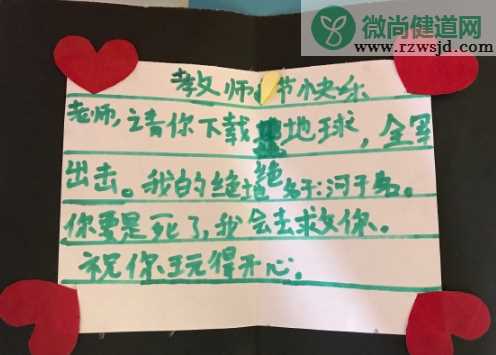 微尚健道网
www.rzwsjd.com
教师节快乐
老师,请你下载地球,全军
出击。我的绝地
你要是死了,我会去救你。
祝你玩得开心。